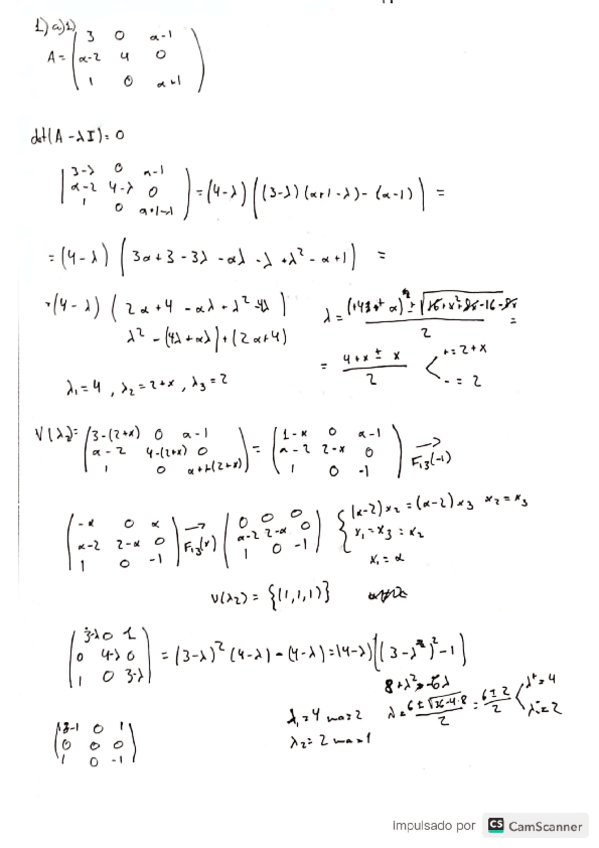 1) a) 1)
A = ( 3 0 α-1
α-2 4 0
1 0 α+1 )
det(A - λI) = 0
| 3-λ 0 α-1
α-2 4-λ 0
1 0 α+1-λ | = (4-λ) ( (3-λ) (α+1-λ) - (α-1) ) =
= (4-λ) ( 3α+3 - 3λ - αλ - λ + λ² - α+1 ) =
= (4-λ) ( 2α+4 - αλ + λ² - 4λ )
λ² - (4λ+αλ) + (2α+4)
= 4+x ± x / 2 < + = 2+x
- = 2
λ₁=4, λ₂=2+x, λ₃=2
V(λ₂) = ( 3-(2+x) 0 α-1
α-2 4-(2+x) 0
1 0 α+1-(2+x) ) = ( 1-α 0 α-1
α-2 2-α 0
1 0 -1 ) → F₁₃(-1)
( -α 0 α
α-2 2-α 0
1 0 -1 ) → F₁₃(α) ( 0 0 0
α-2 2-α 0
1 0 -1 ) { (α-2)x₂ = (α-2)x₃ x₂=x₃
x₁=x₃=x₂
x₁=α
V(λ₂) = {(1,1,1)}
( 3-λ 0 1
0 4-λ 0
1 0 3-λ ) = (3-λ)² (4-λ) - (4-λ) = (4-λ) ((3-λ)² - 1)
8+λ²-6λ
λ₁=4 ma=2
λ₂=2 ma=1
λ = 6 ± √36-4·8 / 2 = 6±2 / 2 < λ⁺=4
λ⁻=2
0 1
0 0 0
1 0 -1 )
Impulsado por CS CamScanner